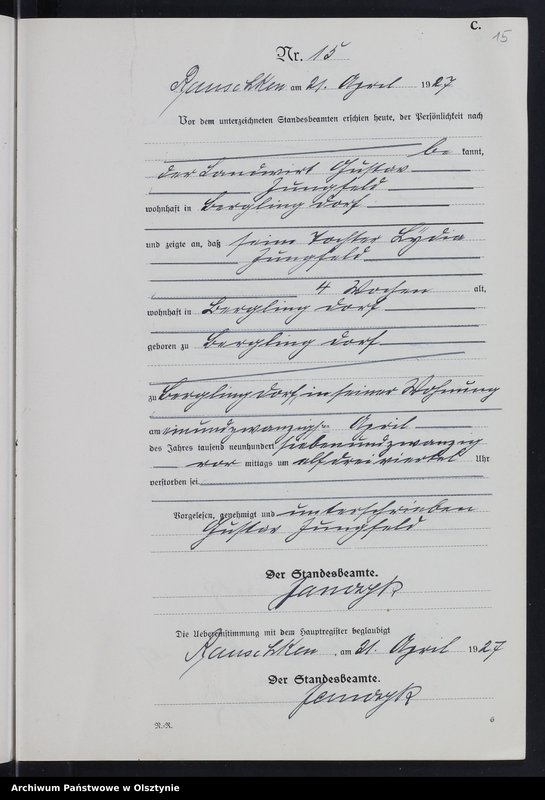 C.
15
Nr. 15
Rauschken am 21. April 1927
Vor dem unterzeichneten Standesbeamten erschien heute, der Persönlichkeit nach
be kannt,
der Landwirt Gustav
Jungfeld
wohnhaft in Bergling dorf
und zeigte an, daß seine Tochter Lydia
Jungfeld
4 Wochen alt,
wohnhaft in Bergling dorf
geboren zu Bergling dorf
zu Berglingdorf, in seiner Wohnung
am einundzwanzigsten April
des Jahres tausend neunhundert siebenundzwanzig
vor mittags um elfdreiviertel Uhr
verstorben sei.
Vorgelesen, genehmigt und unterschrieben
Gustav Jungfeld
Der Standesbeamte.
Die Uebereinstimmung mit dem Hauptregister beglaubigt
Rauschken, am 21. April 1927
Der Standesbeamte.
R.-R.
6
Archiwum Państwowe w Olsztynie